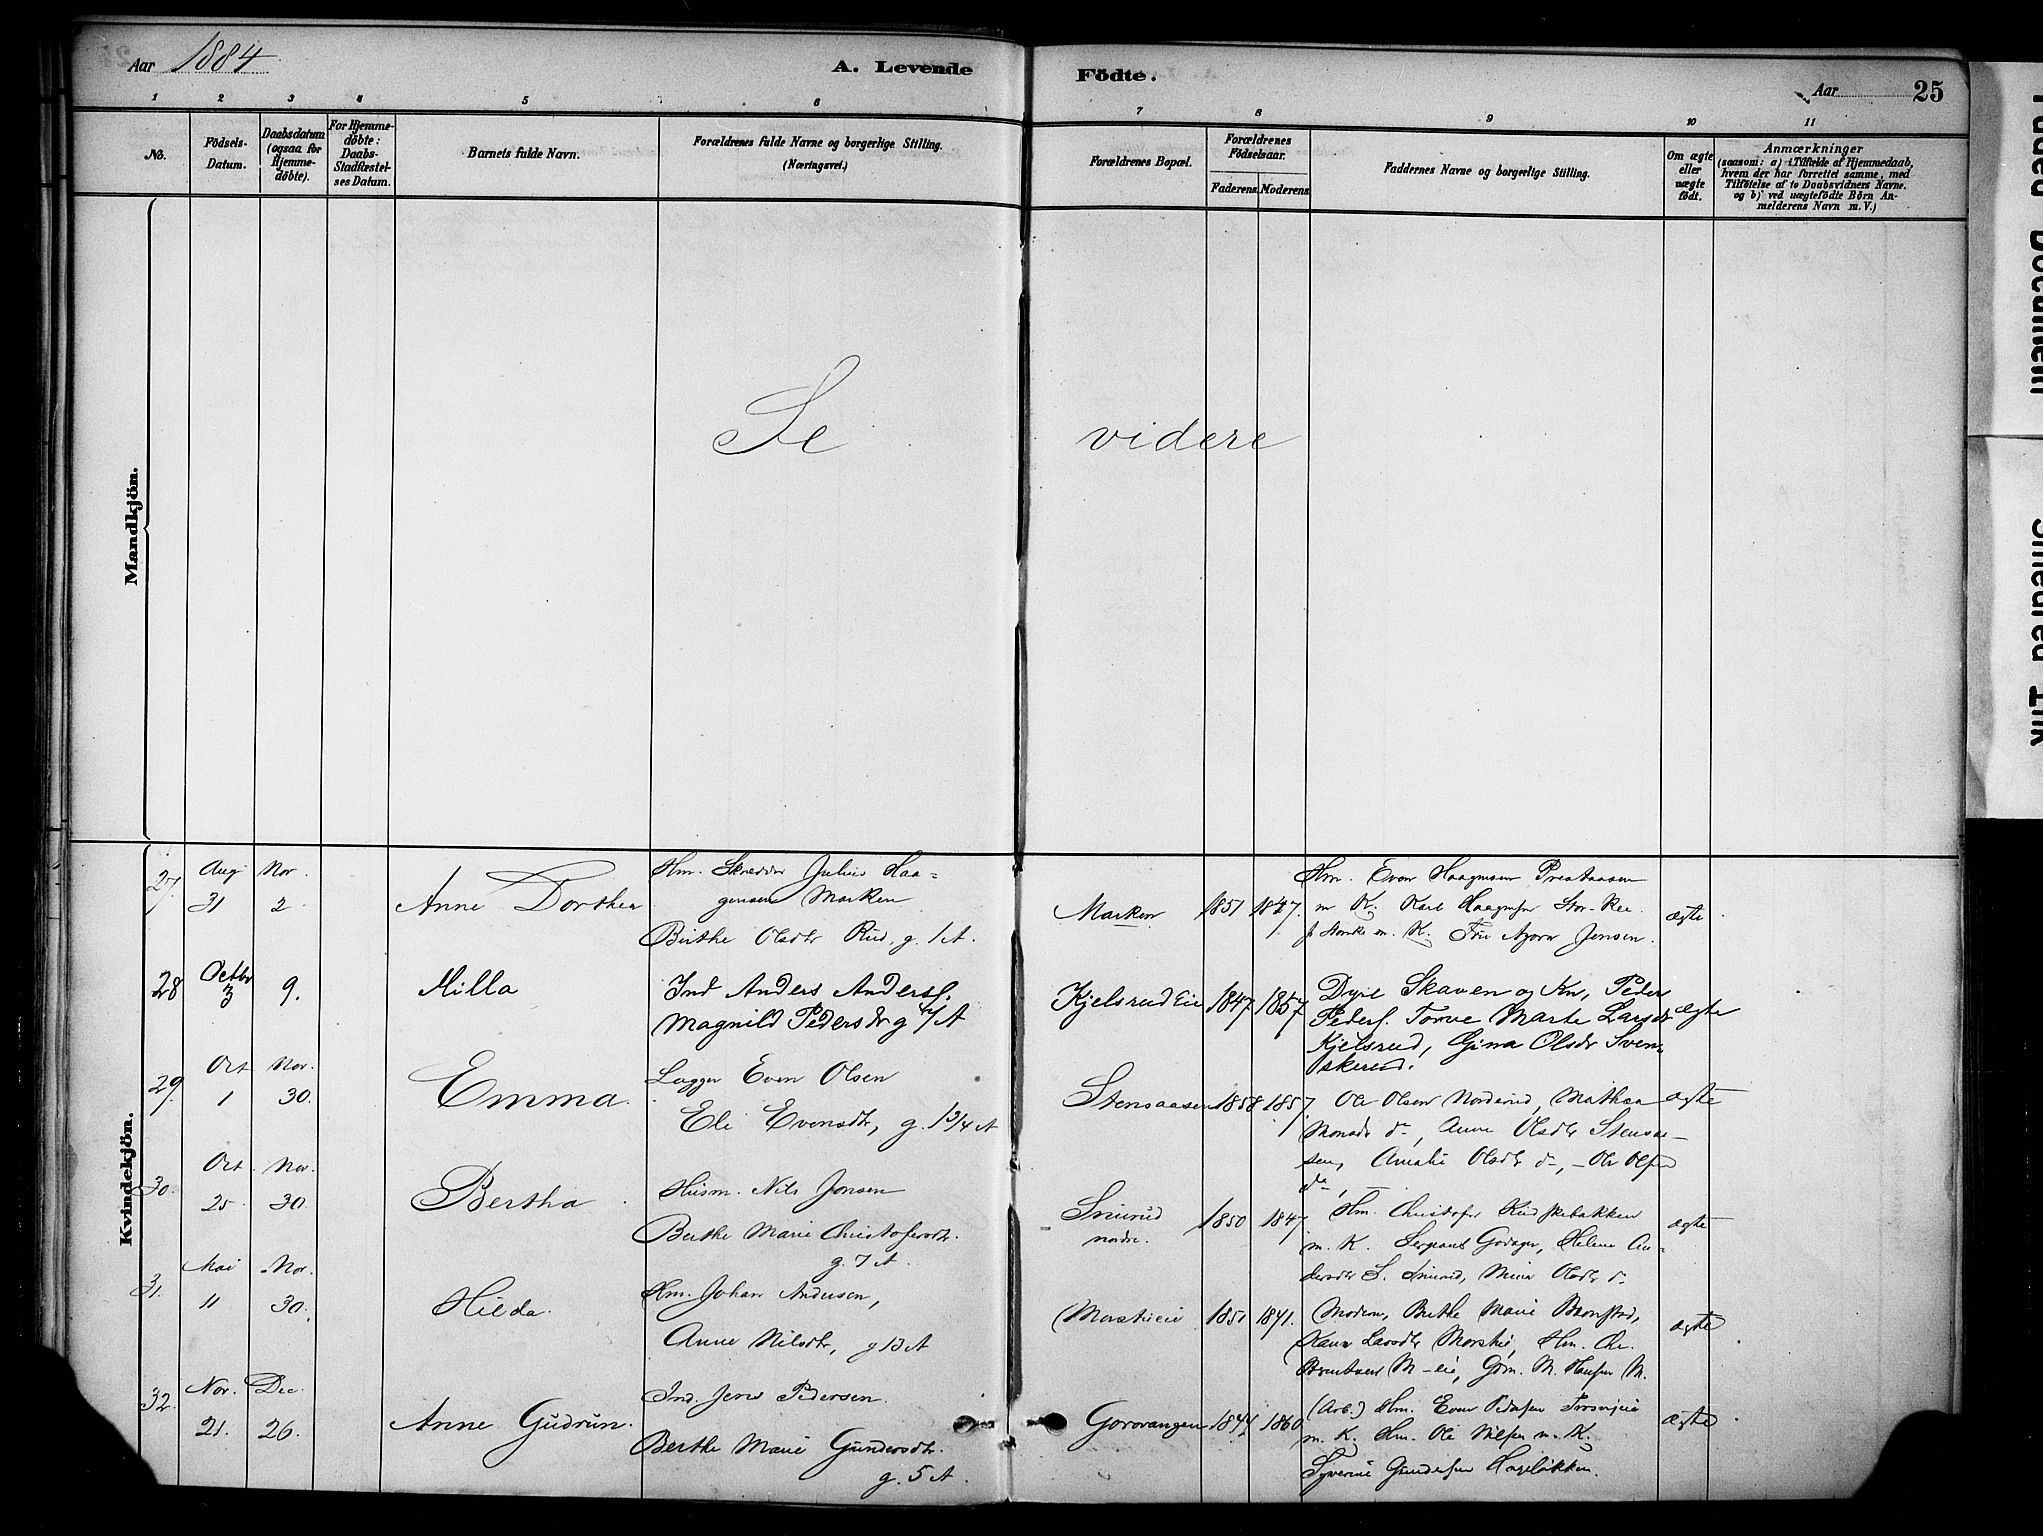 Aar 1884
A. Levende Födte.
Aar 25
1 2 3 4 5 6 7 8 9 10 11
No.
Födsels-Datum.
Daabsdatum (ogsaa for Hjemme-döbte).
For Hjemme-döbte: Daabs-Stadfæstel-ses Datum.
Barnets fulde Navn.
Forældrenes fulde Navne og borgerlige Stilling.
(Næringsvei.)
Forældrenes Bopæl.
Forældrenes Födselsaar.
Faderens. Moderens.
Faddernes Navne og borgerlige Stilling.
Om ægte eller uægte födt.
Anmærkninger
(saasom: a) i Tilfælde af Hjemmedaab,
hvem der har forrettet samme, med
Tilföielse af to Daabsvidners Navne.
og b) ved uægtefödte Börn An-
melderens Navn m. V.)
Mandkjön.
Se videre
Kvindekjön.
27 Aug 31 Nov. 2 Anne Dorthea
Hm. Skrædder Julius Haa=
gensen Marken
Birthe Olsdtr Rud, g. 1 A.
Marken 1851 1847.
Hm. Even Haagensen Prestaasen
m. K. Karl Haagensen
m. K. Jensen.
ægte
28 Octbr 3 9. Milla
Ind Anders Andersf.
Magnild Pedersdr g 7 A
Kjelsrud Eie 1847 1857
Dyre Skaven og Kn, Peder
Pedersf. Marte Larsdr
Kjelsrud, Gina Olsdr Sven-
skerud.
ægte
29 Oct 1 Nov. 30. Emma
Lægger Even Olsen
Eli Evensdtr, g. 13/4 A
Stensaasen 1858 1857
Ole Olsen Norderud, Mathea
Monsdtr do, Anne Olsdtr Stensaa-
sen, Amalie Olsdtr do, Ole Olsen
do,
ægte
30. Oct 25 Nov. 30 Bertha
Husm. Nils Jonsen
Berthe Marie Christofersdtr.
g. 7 A.
Smerud nordre. 1850 1847
Hm. Christofer
m. K. Sergeant Godager, Helene An-
dersdtr S. Smerud, Mina Olsdtr do
ægte
31. Mai 11 Nov. 30. Hilda.
Hm. Johan Andersen,
Anne Nilsdtr, g 13 A
Morstueie 1851 1841.
Moderen, Berthe Marie
Karen Larsdtr Morstue, Hm. Chr.
M-eie, Grm. M.
ægte
32. Nov. 21. Dec. 26. Anne Gudrun.
Ind. Jens Pedersen.
Berthe Marie Gundersdtr.
g. 5 A.
Gorovangen 1844 1860
(Arb.) Hm. Even Pedersen
m. K. Hm. Ole Nilsen m. K.
Syverine Gundersen Hageløkken.
ægte
Faded Document
Smeared Ink